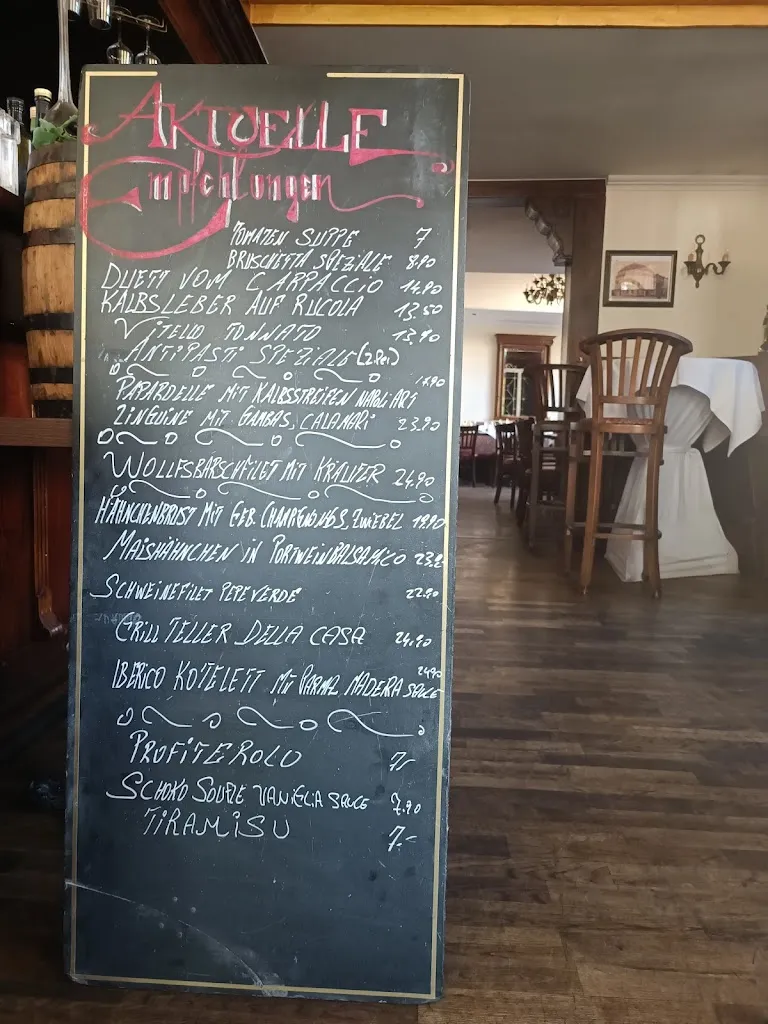 AKTUELLE
Empfehlungen
TOMATEN SUPPE 7
BRUSCHETTA SPEZIALE 8,90
DUETT VOM CARPACCIO 14,90
KALBSLEBER AUF RUCOLA 13,50
VITELLO TONNATO 13,90
ANTIPASTI SPEZIALE (2 Per)
PAPARDELLE MIT KALBSSTREIFEN NAPOLI ART 17,90
LINGUINE MIT GAMBAS, CALAMARI 23,90
WOLLFSBARSCHFILET MIT KRÄUTER 24,90
HÄHNCHENBRUST MIT GEB. CHAMPAGNONGS, ZWIEBEL 19,90
MAISHÄHNCHEN IN PORTWEINBALSAMICO
SCHWEINEFILET PEPE VERDE 22,90
GRILL TELLER DELLA CASA 24,90
IBERICO KOTELETT MIT PARMA MADERA SAUCE 24,90
PROFITEROLO 7,-
SCHOKO SOUFLE VANIGLIA SAUCE 7,90
TIRAMISU 7,-